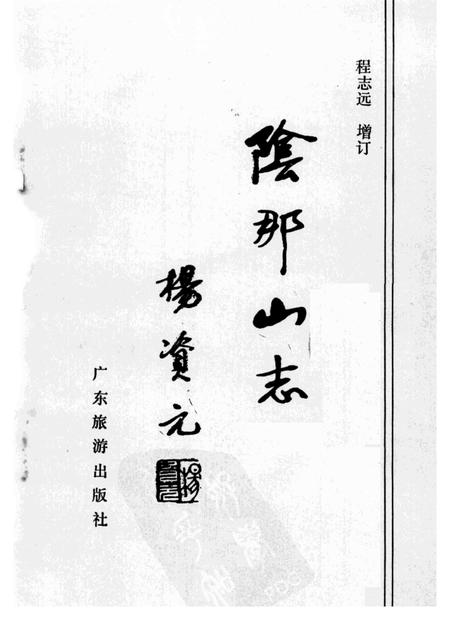 程志远 增订
陰那山志
楊資元
广东旅游出版社